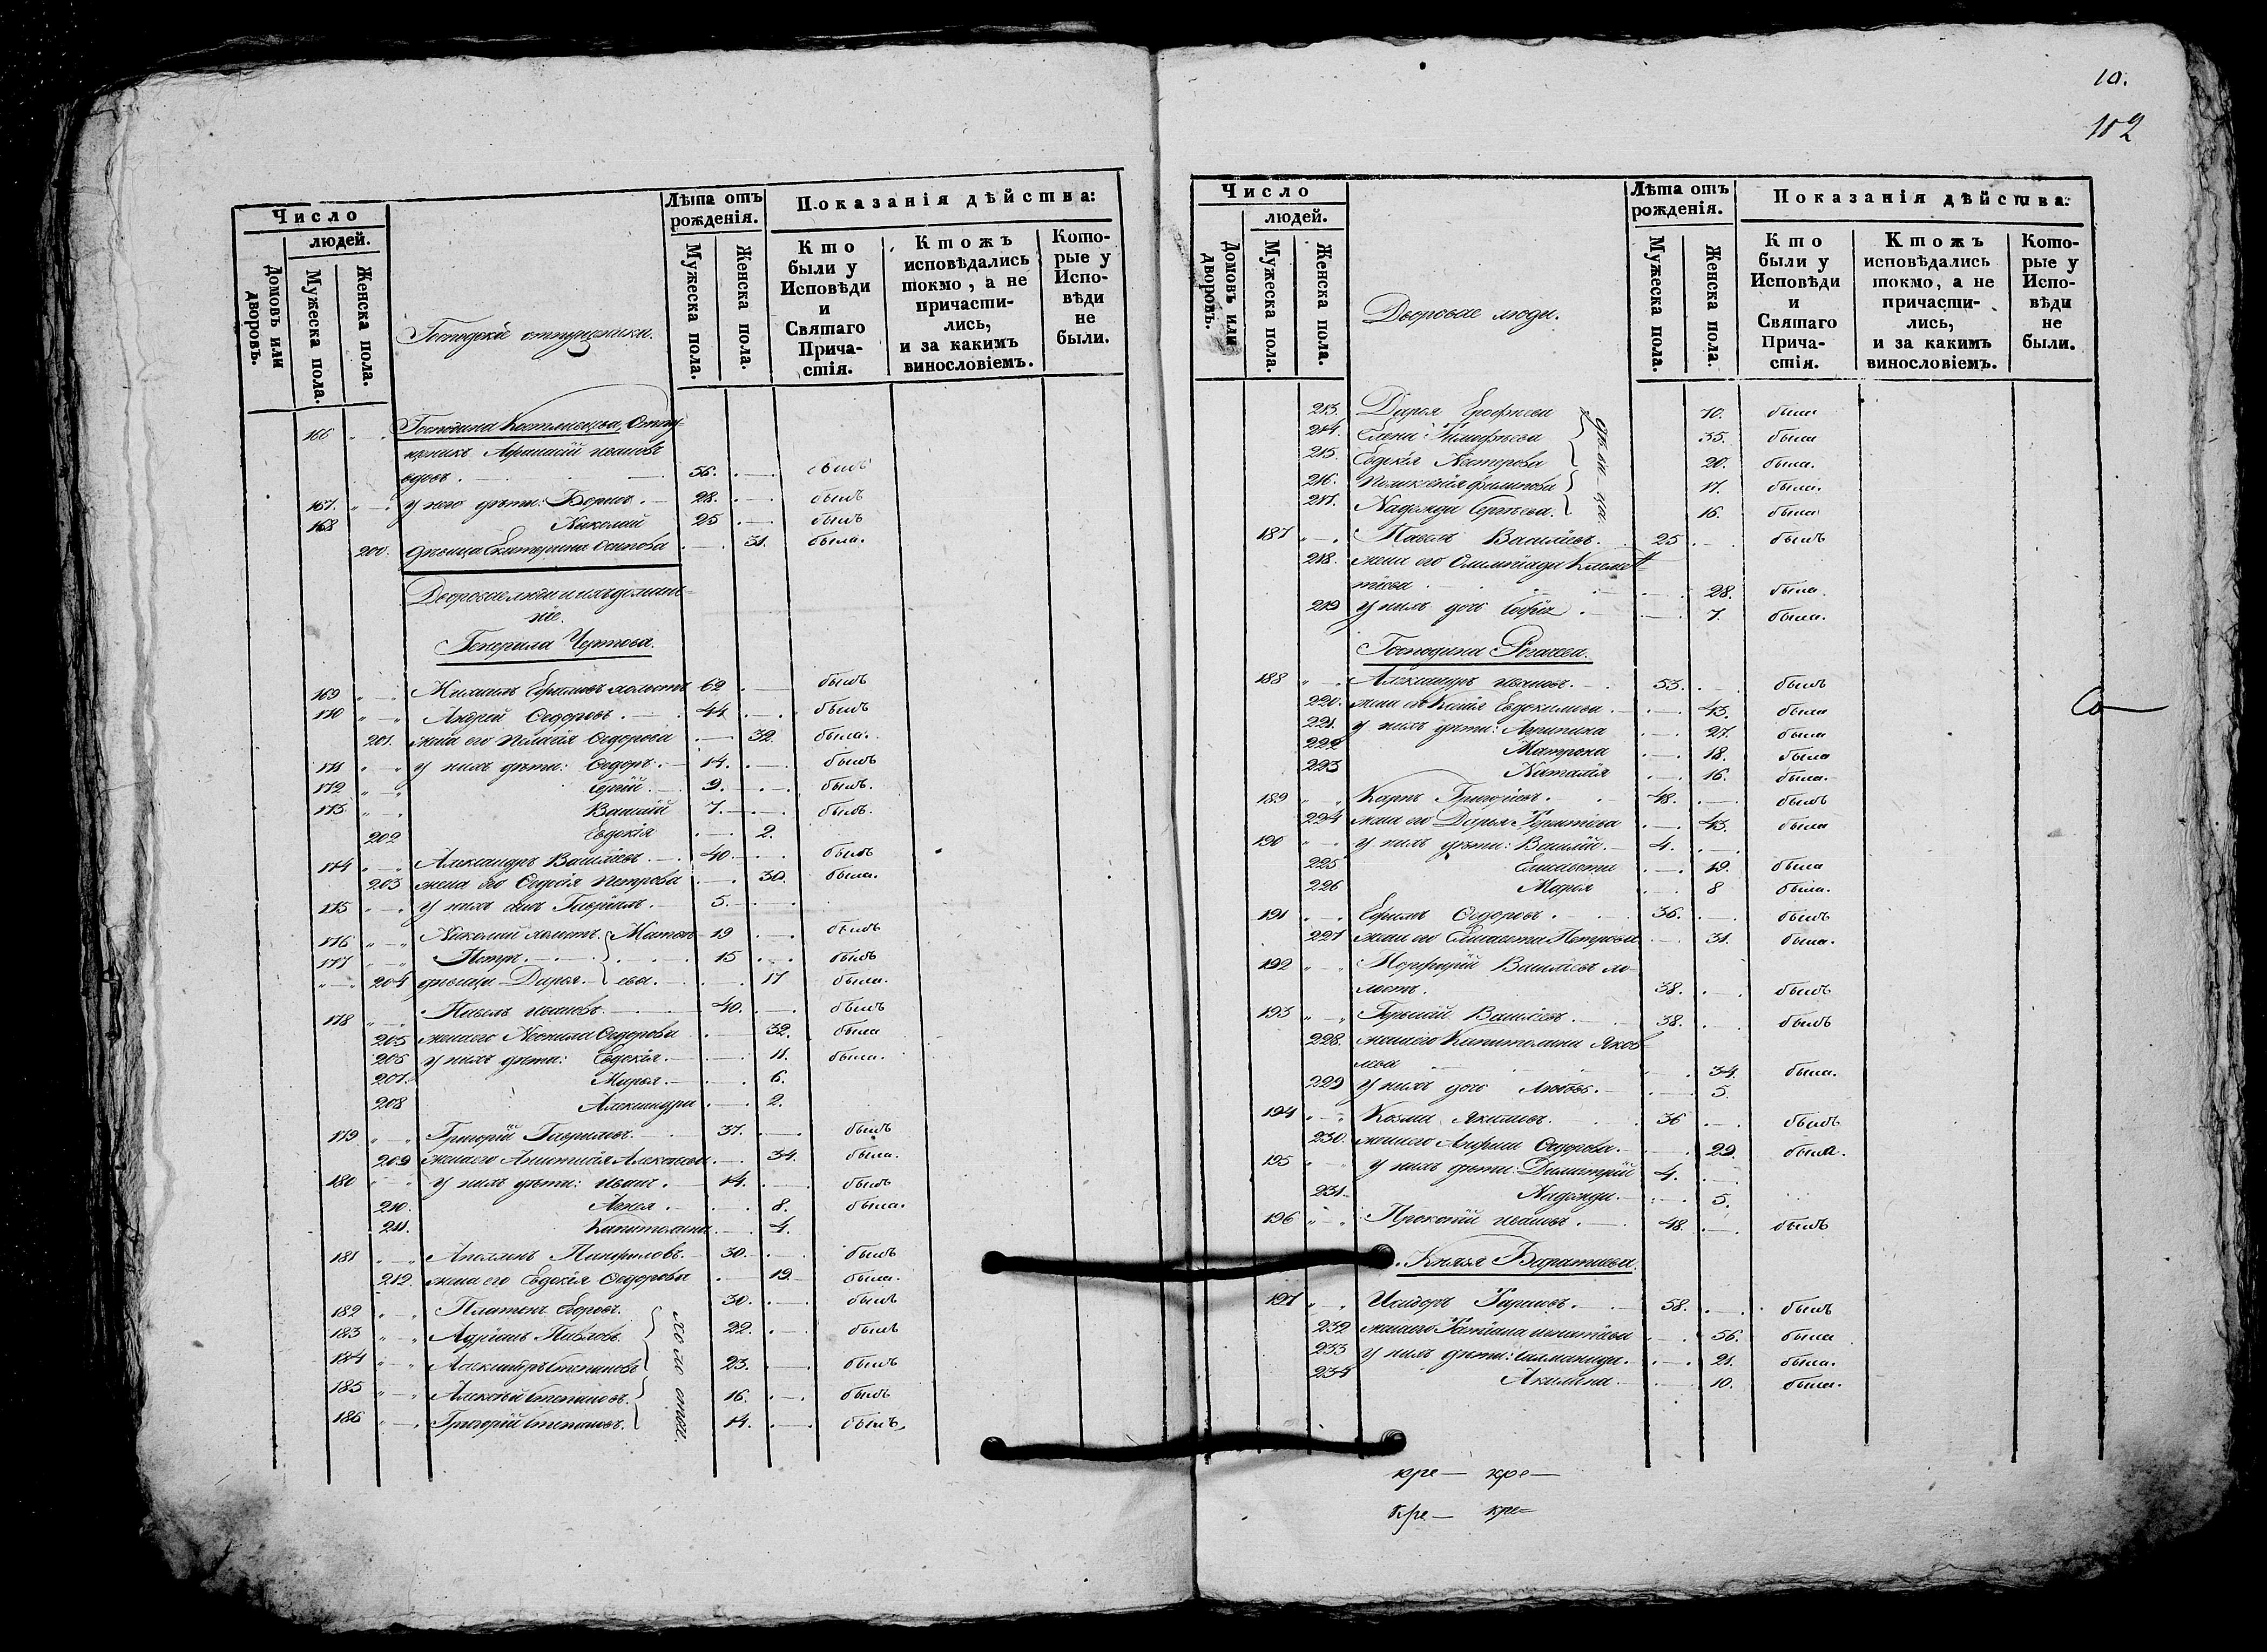 Число
людей.
Домовъ или дворовъ.
Мужеска пола.
Женска пола.
Господскіе отпущеники.
Лѣта отъ рожденія.
Мужеска пола.
Женска пола.
Показанія дѣйства:
Кто были у Исповѣди и Святаго Причастія.
Ктожъ исповѣдались токмо, а не причастились, и за какимъ винословіемъ.
Которые у Исповѣди не были.
166 Господина Отпу-
Афанасій Ивановъ
вдовъ. 56. былъ
167. у него дѣти: Борисъ. 28. былъ
168 Николай 25 былъ
200. дѣвица Екатерина Осипова 31. была.
Дворовые люди и ихъ домаш-
ніе.
Генерала Чертова.
169 Ефимовъ холостъ 62 былъ
170 Андрей Ѳедоровъ. 44 былъ
201. жена его Пелагія Ѳедорова 32. была.
171 у нихъ дѣти: Ѳедоръ. 14. былъ
172 Сергій. 9. былъ.
173 Василій 7. былъ.
202 Евдокія 2.
174 Александръ Васильевъ. 40. былъ
203 жена его Ѳедосія Петрова 30. была.
175 у нихъ сынъ Гаврилъ. 5.
176 Николай холостъ. 19 былъ
177 Петръ. 15 былъ
204 дѣвица Дарья. 17 была.
178 Павелъ Ивановъ. 40. былъ
205 жена его Ѳедорова 32. была
206 у нихъ дѣти: Евдокія. 11. была.
207. Марья. 6.
208 Александра 2.
179 Григорій Гавриловъ. 37. былъ
209 жена его Анастасія Алексѣева 34. была.
180 у нихъ дѣти: Иванъ. 14. былъ
210. 8. была.
211. Капитолина 4.
181 Панфиловъ. 30. былъ
212. жена его Евдокія Ѳедорова 19. была.
182 Платонъ Егоровъ. 30. былъ
183 Адріанъ Павловъ. 22. былъ
184 Александръ Степановъ 23. былъ
185 Алексѣй Степановъ. 16. былъ
186 Григорій Степановъ. 14. былъ
холосты.
10.
102
Число
людей.
Домовъ или дворовъ.
Мужеска пола.
Женска пола.
Дворовые люди.
Лѣта отъ рожденія.
Мужеска пола.
Женска пола.
Показанія дѣйства:
Кто были у Исповѣди и Святаго Причастія.
Ктожъ исповѣдались токмо, а не причастились, и за какимъ винословіемъ.
Которые у Исповѣди не были.
213. Дарья Ерофѣева 70. была
214. Елена 35. была
215. Евдокія Нестерова 20. была.
216. Филипова 17. была.
217. Надежда Сергѣева. 16. была
187 Павелъ Васильевъ. 25 былъ
218. жена его Олимпіада Клемен-
тіева 28. была.
219 у нихъ дочь Софія 7. была.
Господина Рогачева.
188 Александръ Ивановъ. 53. былъ
220. жена его Ксенія Евдокимова 43. была
221. у нихъ дѣти: Агрипина 27. была
222 Матрона 18. была
223 Наталія 16. была.
189 Карпъ Григорьевъ. 48. былъ
224 жена его Дарья 43. была
190 у нихъ дѣти: Василій. 4.
225 Елисавета 19. была
226 Марья 8 была.
191 Ефимъ Ѳедоровъ. 36. былъ
227 жена его Елисавета Петрова 31. была.
192 Порфирій Васильевъ хо-
лостъ. 38. былъ
193 Василіевъ. 38. былъ
228. жена его Капитолина Яков-
лева 34. была.
229 у нихъ дочь Любовь. 5.
194 Козма Якимовъ. 36 былъ
230. жена его Анфиса Ѳедорова. 29. была.
195 у нихъ дѣти: Димитрій 4.
231. Надежда. 5.
196 Прокопій Ивановъ. 48. былъ
Князя Баратаева.
197 Исидоръ 58. былъ
232 жена его Татіана Игнатіева 56. была
233 у нихъ дѣти: 21. была.
234 Акилина 10. была.
кре— кре—
кре— кре—